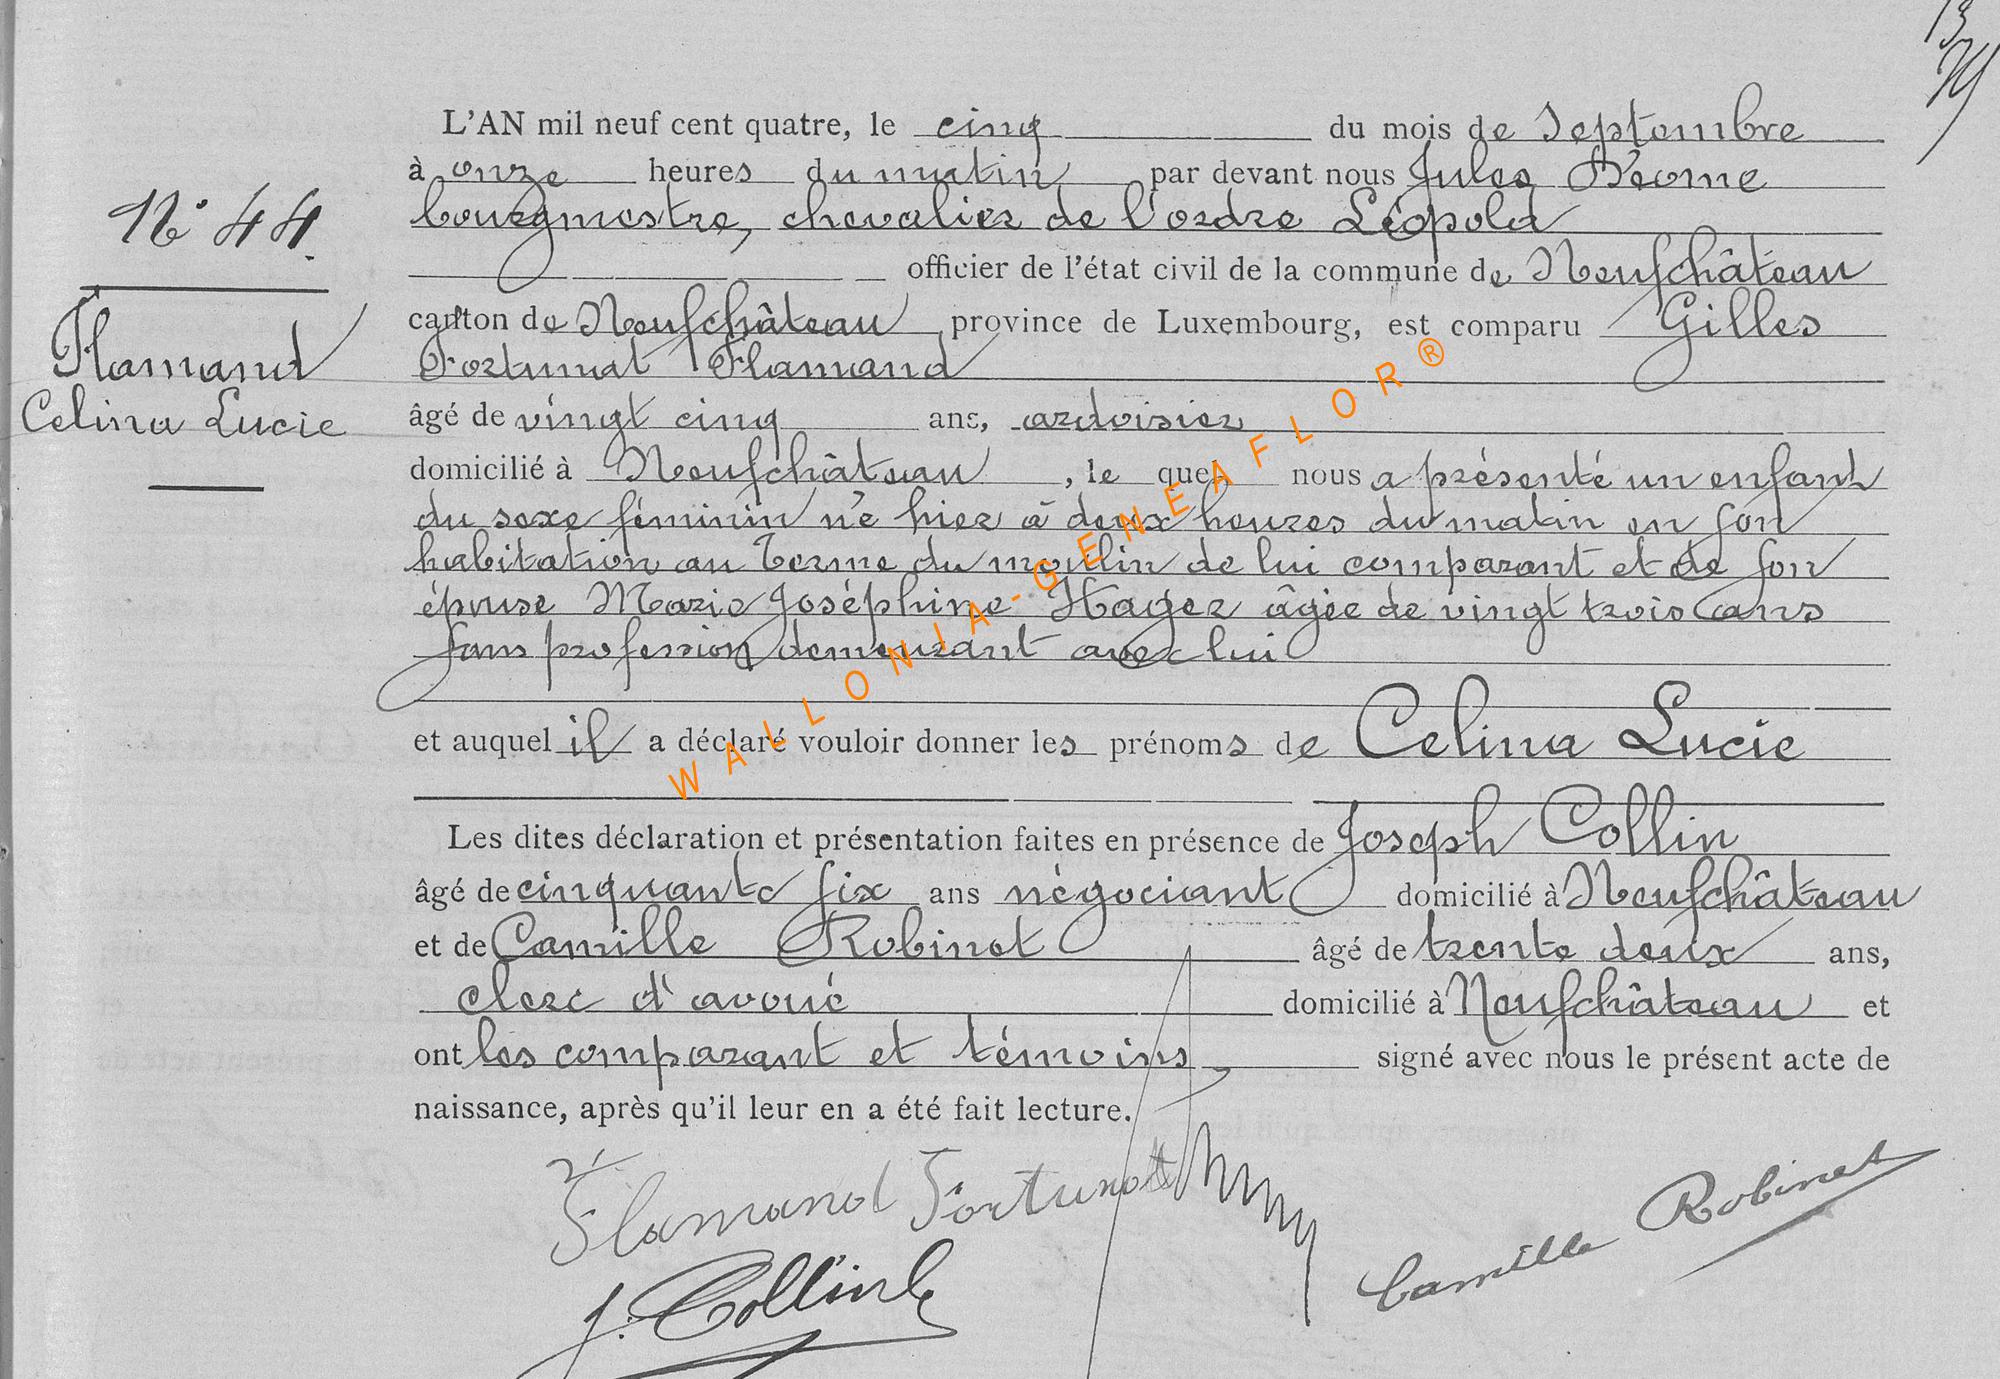 13
L'AN mil neuf cent quatre, le cinq du mois de Septembre
à onze heures du matin par devant nous Jules
bourgmestre, chevalier de l'ordre Léopold
officier de l'état civil de la commune de Neufchâteau
canton de Neufchâteau, province de Luxembourg, est comparu Gilles
Fortunat Flamand
âgé de vingt cinq ans, ardoisier
domicilié à Neufchâteau, lequel nous a présenté un enfant
du sexe féminin né hier à deux heures du matin en son
habitation au Terme du moulin de lui comparant et de son
épouse Marie Joséphine Hager âgée de vingt trois ans
sans profession demeurant avec lui
et auquel il a déclaré vouloir donner les prénoms de Celina Lucie
Les dites déclaration et présentation faites en présence de Joseph Collin
âgé de cinquante six ans négociant domicilié à Neufchâteau
et de Camille Robinet âgé de trente deux ans,
clerc d'avoué domicilié à Neufchâteau et
ont les comparant et témoins, signé avec nous le présent acte de
naissance, après qu'il leur en a été fait lecture.
Flamand Fortunat
J. Collin
Camille Robinet
N° 44.
Flamand
Celina Lucie
WALLONIA-GENEAFLOR®